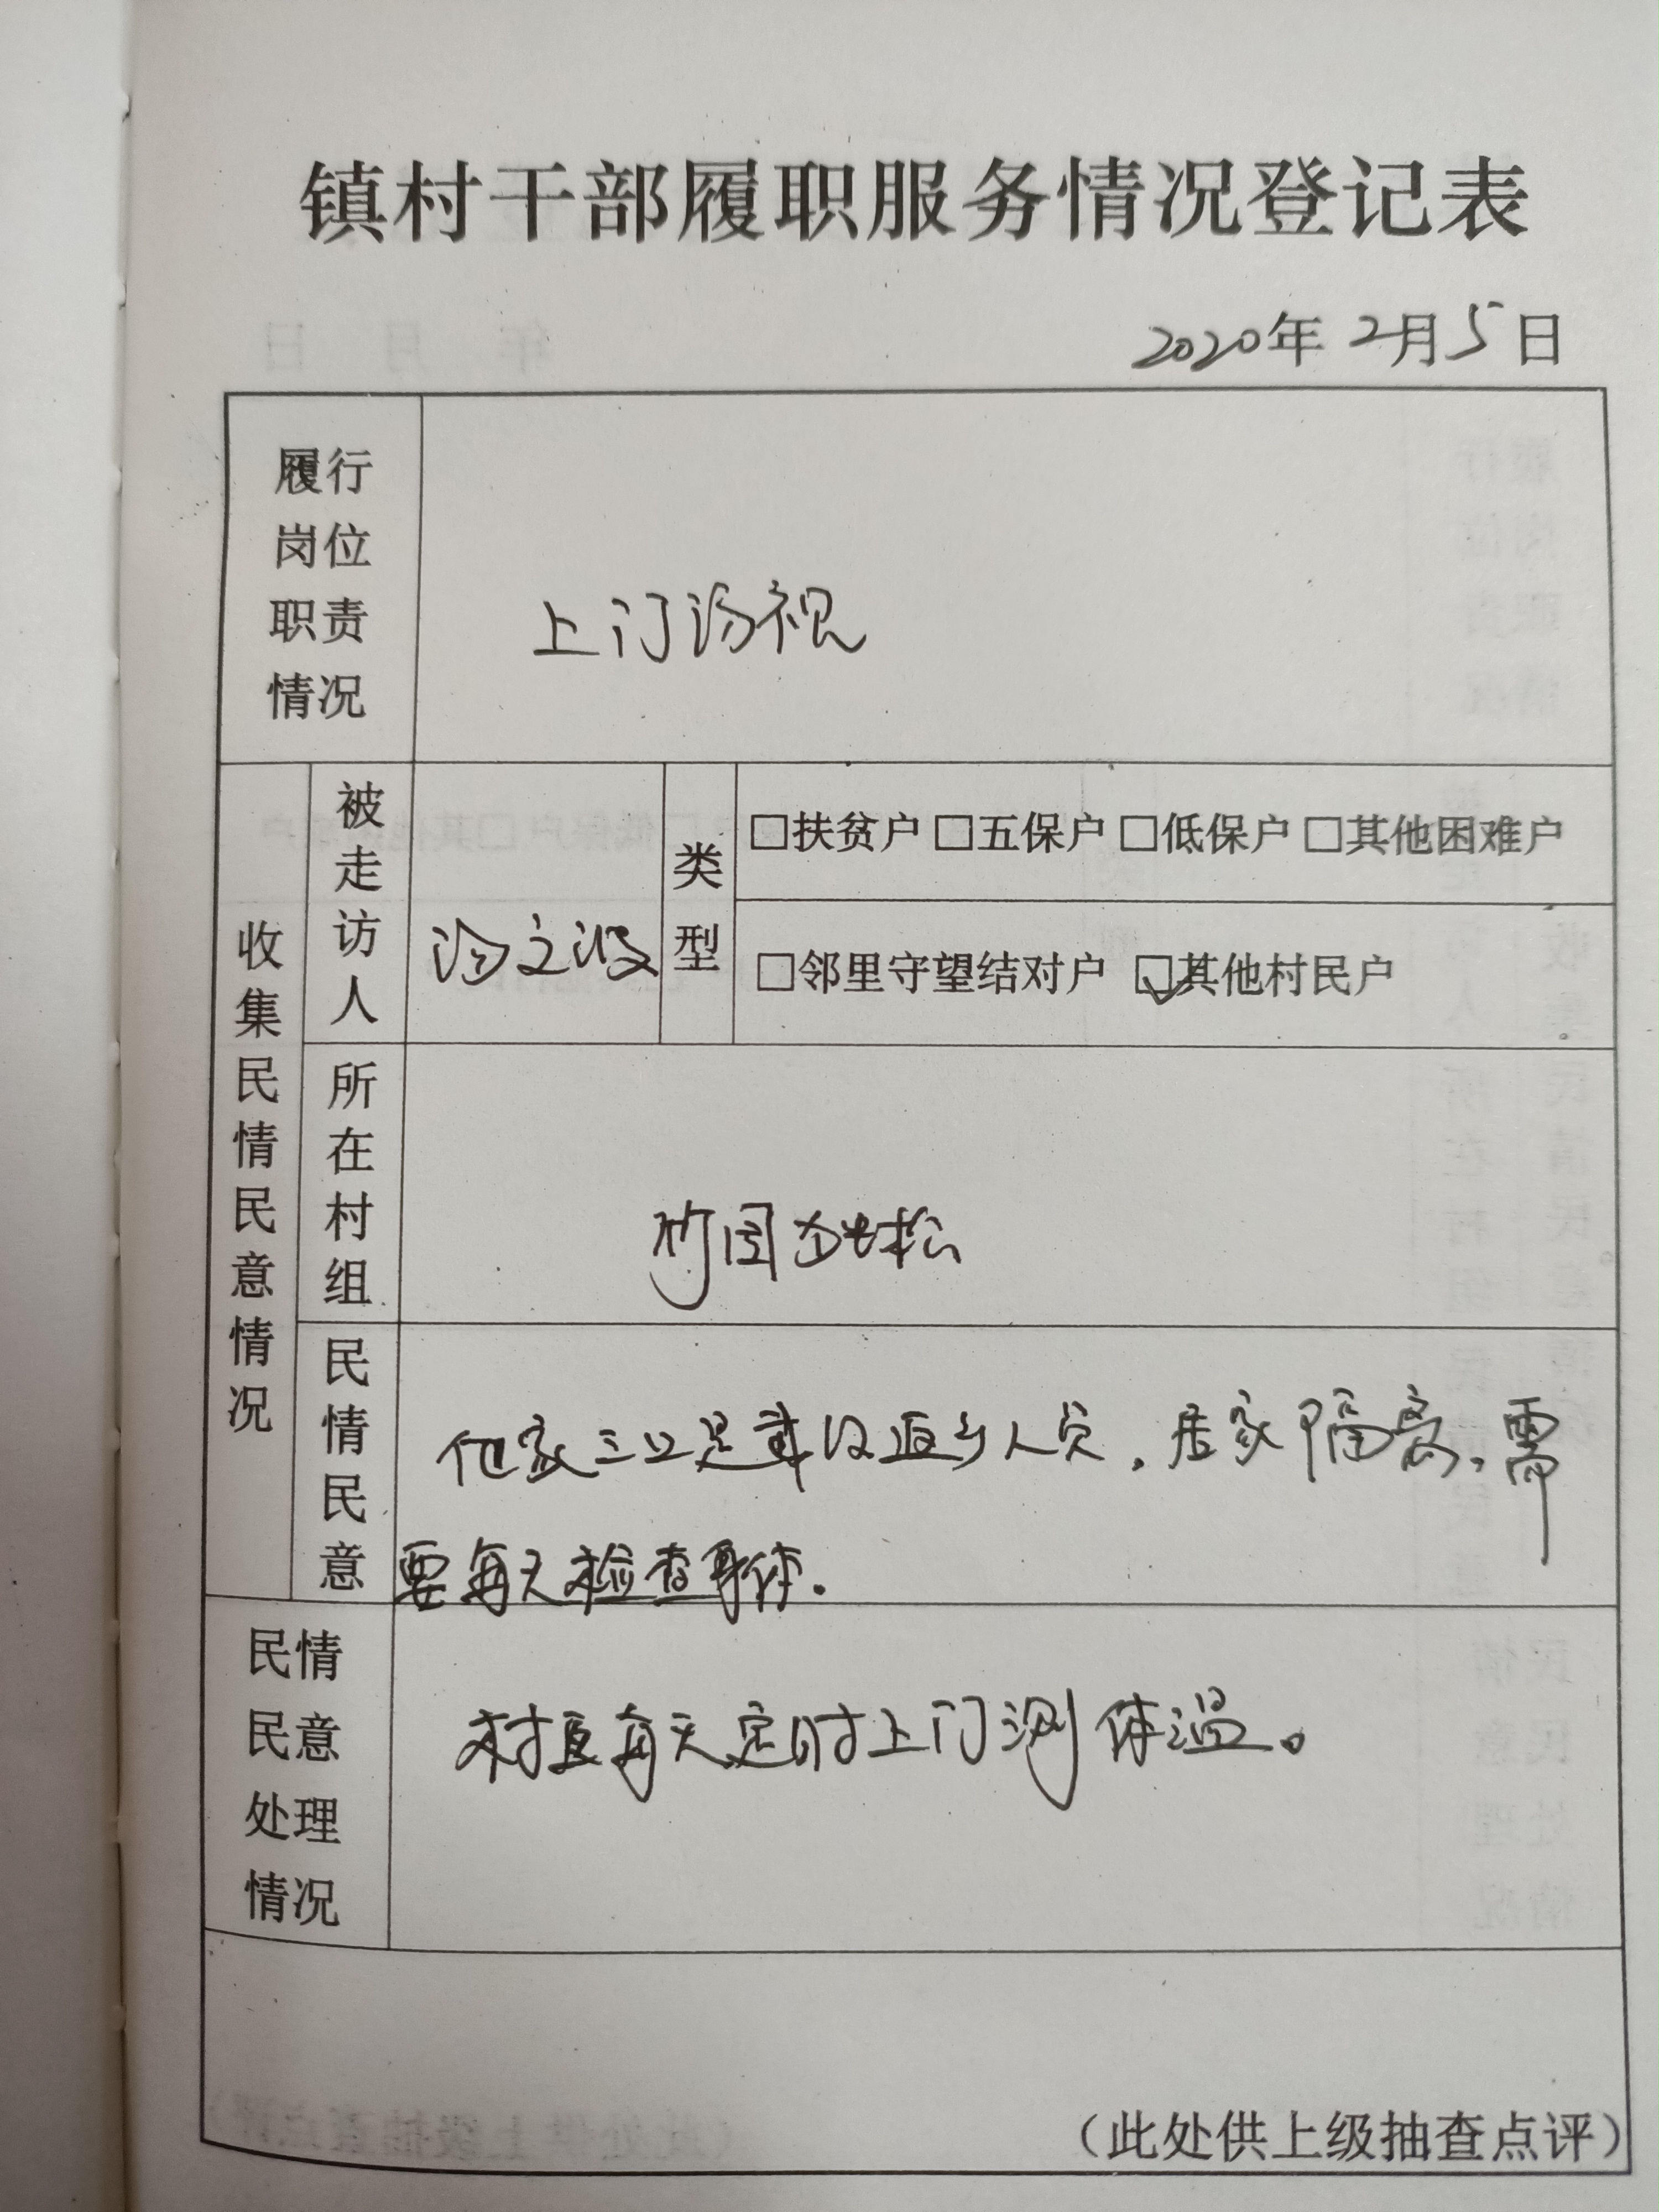 镇村干部履职服务情况登记表
2020年2月5日
履行
岗位
职责
情况
上门访视
收集民情民意情况
被走访人
类型
□扶贫户 □五保户 □低保户 □其他困难户
□邻里守望结对户 ☑其他村民户
所在村组
民情民意
他家三口是武汉返乡人员,居家隔离,需
要每天检查身体.
民情
民意
处理
情况
村医每天定时上门测体温。
(此处供上级抽查点评)